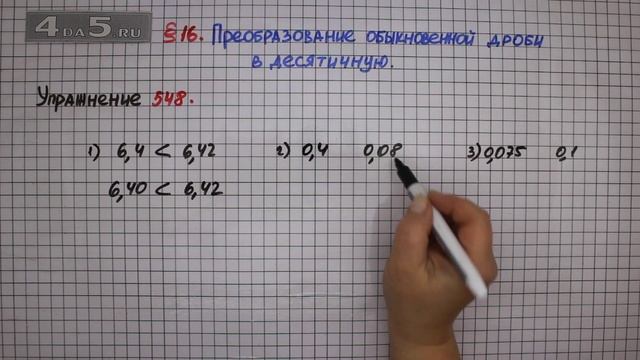 4DA5.RU
§ 16. Преобразование обыкновенной дроби
в десятичную.
Упражнение 548.
1) 6,4 < 6,42 2) 0,4 0,08 3) 0,075 0,1
6,40 < 6,42